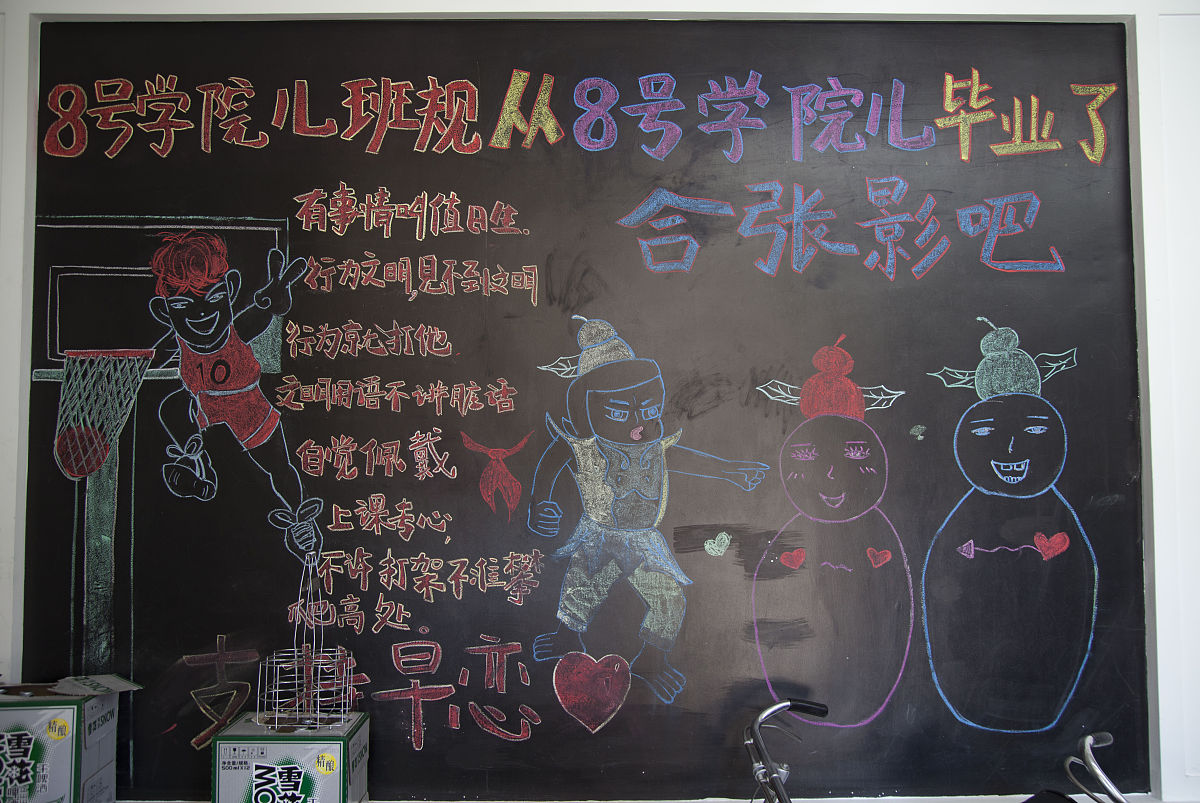 8号学院儿班规 从8号学院儿毕业了
合张影吧
有事情叫值日生.
行为文明,见不到文明
行为就打他
文明用语不讲脏话
自觉佩戴
上课专心,
不许打架不准攀
爬高处。
支持早恋
10
精酿
雪花
SNOW
500mlX12
精酿
雪花